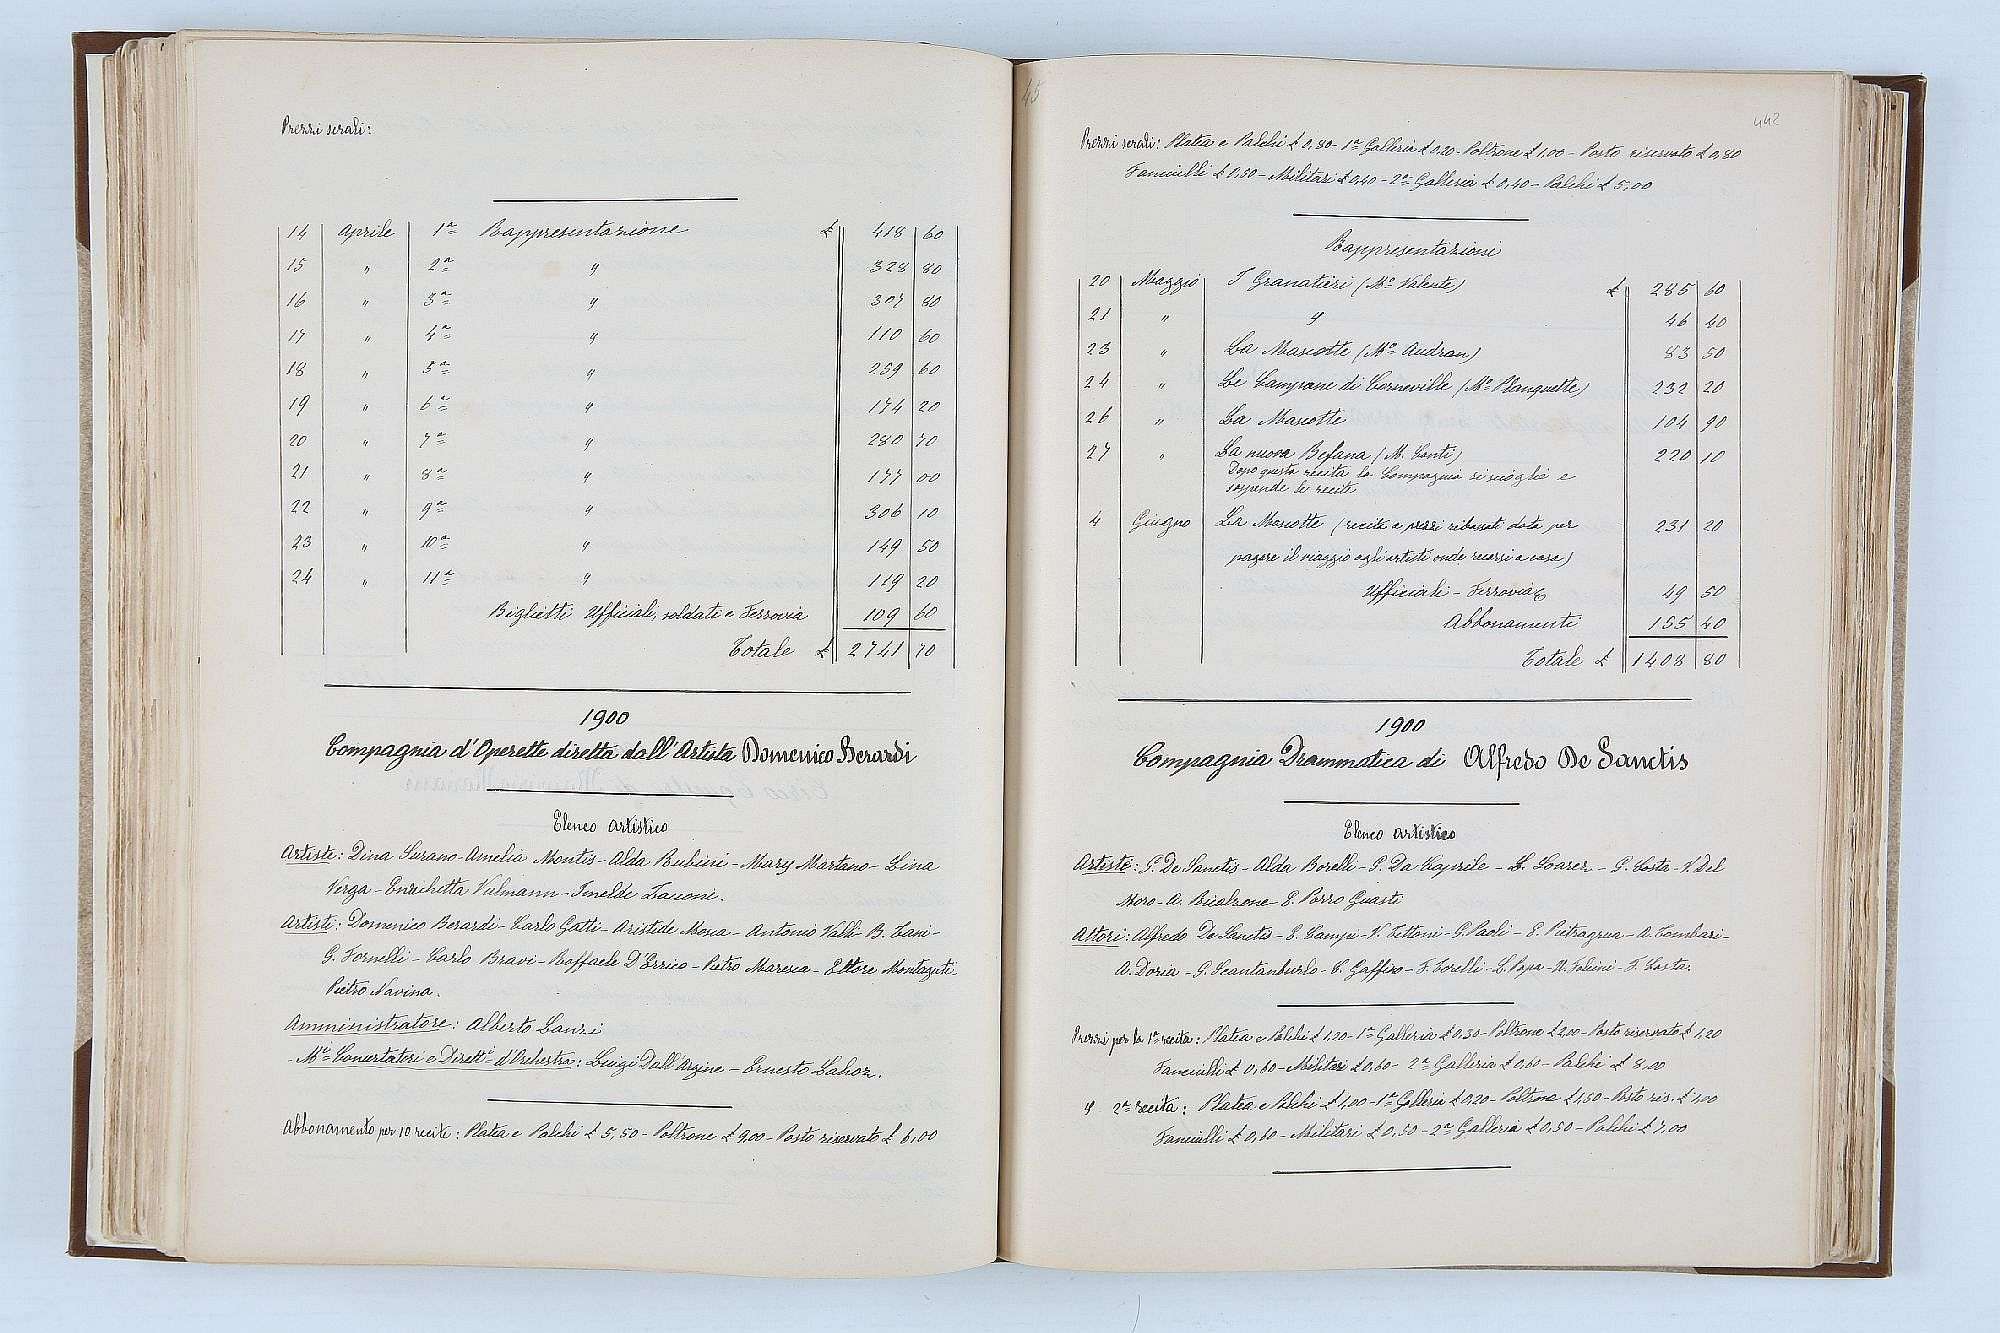 Prezzi serali:
14 Aprile 1ª Rappresentazione £ 418 60
15 " 2ª " 328 80
16 " 3ª " 307 80
17 " 4ª " 110 60
18 " 5ª " 259 60
19 " 6ª " 174 20
20 " 7ª " 280 70
21 " 8ª " 177 00
22 " 9ª " 306 10
23 " 10ª " 149 50
24 " 11ª " 119 20
Biglietti Ufficiali, soldati e Ferrovia 109 60
Totale £ 2741 70
1900
Compagnia d'Operette diretta dall'Artista Domenico Berardi
Elenco artistico
Artiste: Dina Surano - Amelia Montis - Alda Rubini - Mary Martano - Lina
Verga - Enrichetta Vulmann - Isnelda
Artisti: Domenico Berardi - Carlo Gatti - Aristide Mosca - Antonio Valli - B. Cani -
G. Fornelli - Carlo Bravi - Raffaele D'Errico - Pietro Maresca - Ettore Montaguti -
Pietro Navina.
Amministratore: Alberto Lanzi
Mⁱ Concertatori e Direttⁱ d'Orchestra: Luigi Dall'Argine - Ernesto Lahoz.
Abbonamento per 10 recite: Platea e Palchi £ 5,50 - Poltrone £ 9,00 - Posto riservato £ 6,00
45
442
Prezzi serali: Platea e Palchi £ 0,80 - 1ª Galleria £ 0,20 - Poltrone £ 1,00 - Posto riservato £ 0,80
Fanciulli £ 0,50 - Militari £ 0,40 - 2ª Galleria £ 0,40 - Palchi £ 5,00
Rappresentazioni
20 Maggio I Granatieri (Mº Valente) £ 285 60
21 " " 46 40
23 " La Mascotte (Mº Audran) 83 50
24 " Le Campane di Corneville (Mº Planquette) 232 20
26 " La Mascotte 104 90
27 " La nuova Befana (M. Conti) 220 10
Dopo questa recita la Compagnia si scioglie e
sospende le recite
4 Giugno La Mascotte (recita a prezzi ribassati data per 231 20
pagare il viaggio agli artisti onde recarsi a casa)
Ufficiali - Ferrovia 49 50
Abbonamenti 155 40
Totale £ 1408 80
1900
Compagnia Drammatica di Alfredo De Sanctis
Elenco artistico
Artiste: G. De Sanctis - Alda Borelli - P. Da Caprile - L. Soarez - G. Costa - V. Del
Moro - A. Picalzone - E. Porro Guasti
Attori: Alfredo De Sanctis - E. Campi - V. Tettoni - G. Paoli - E. Pietragrua - A. Lombari -
A. Doria - G. Scantanburlo - C. Gaffino - F. Torelli - L. Papa - F. Costa.
Prezzi per la 1ª recita: Platea e Palchi £ 1,20 - 1ª Galleria £ 0,30 - Poltrone £ 2,00 - Posto riservato £ 1,20
Fanciulli £ 0,60 - Militari £ 0,60 - 2ª Galleria £ 0,60 - Palchi £ 8,00
" 2ª recita: Platea e Palchi £ 1,00 - 1ª Galleria £ 0,20 - Poltrone £ 1,50 - Posto ris. £ 1,00
Fanciulli £ 0,60 - Militari £ 0,50 - 2ª Galleria £ 0,50 - Palchi £ 7,00